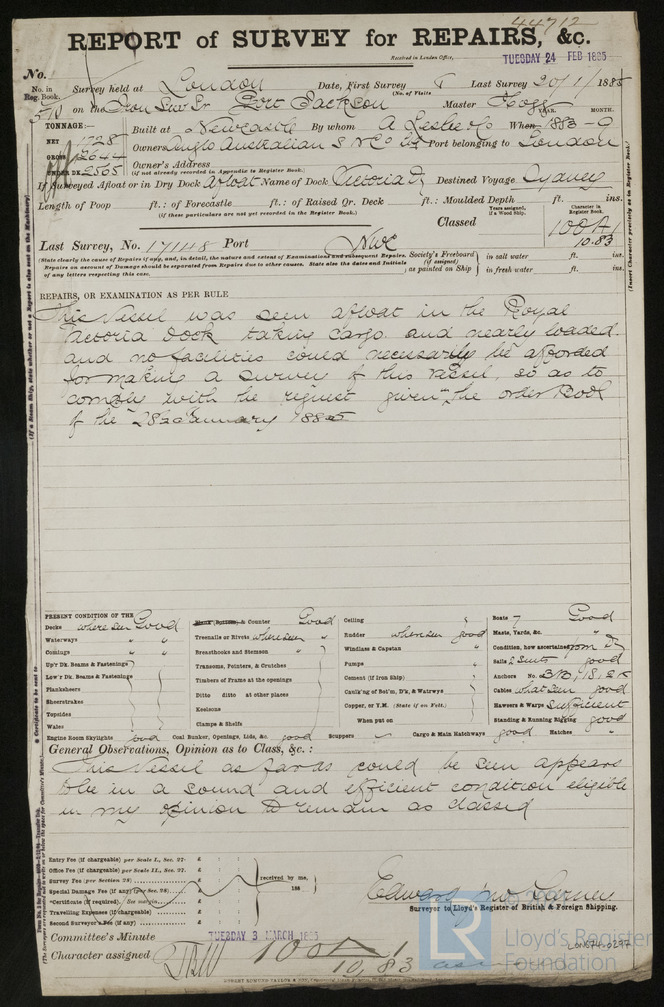 44712
REPORT of SURVEY for REPAIRS, &c.
Received in London Office, TUESDAY 24 FEB 1885
No.
No. in Reg. Book. Survey held at London Date, First Survey Last Survey 20/1/1885
(No. of Visits)
on the Iron Scw Sr Port Jackson Master Hogg
TONNAGE:— YEAR. MONTH.
NET 1728 Built at Newcastle By whom A Leslie & Co When 1883-9
GROSS 2644 Owners Anglo Australian S N Co Ld Port belonging to London
UNDER DK 2565 Owner's Address
(if not already recorded in Appendix to Register Book.)
If Surveyed Afloat or in Dry Dock Afloat Name of Dock Victoria Dk Destined Voyage Sydney
Length of Poop ft.: of Forecastle ft.: of Raised Qr. Deck ft.: Moulded Depth ft. ins.
(if these particulars are not yet recorded in the Register Book.)
Years assigned, if a Wood Ship. Character in Register Book.
Classed 100A1
10.83
Last Survey, No. 17148 Port Nwc
(State clearly the cause of Repairs if any, and, in detail, the nature and extent of Examinations and subsequent Repairs.
Repairs on account of Damage should be separated from Repairs due to other causes. State also the dates and Initials
of any letters respecting this case.
Society's Freeboard (if assigned) as painted on Ship { in salt water ft. ins.
in fresh water ft. ins.
REPAIRS, OR EXAMINATION AS PER RULE
This Vessel was seen afloat in the Royal
Victoria Dock taking cargo and nearly loaded
and no facilities could necessarily be afforded
for making a survey of this vessel, so as to
comply with the request given in the order Book
of the 28th January 1885
PRESENT CONDITION OF THE
Decks where seen Good
Waterways " "
Comings " "
Up'r Dk. Beams & Fastenings
Low'r Dk. Beams & Fastenings
Planksheers
Sheerstrakes
Topsides
Wales
Engine Room Skylights good
Blank (Bottom) & Counter Good
Treenails or Rivets where seen "
Breasthooks and Stemson
Transoms, Pointers, & Crutches
Timbers of the Frame at openings
Ditto ditto at other places
Keelsons
Clamps & Shelfs
Coal Bunker, Openings, Lids, &c. good
Ceiling
Rudder where seen good
Windlass & Capstan "
Pumps "
Cement (if Iron Ship)
Caulk'ng of Bot'm, D'k, & Watrwys
Copper, or Y.M. (State if on Felt.)
When put on
Scuppers Cargo & Main Hatchways good
Boats 7 Good
Masts, Yards, &c. "
Condition, how ascertained from Dk
Sails 2 Suits good
Anchors No. 3B, 1S, 2K
Cables what seen good
Hawsers & Warps Sufficient
Standing & Running Rigging good
Hatches "
General Observations, Opinion as to Class, &c.:
This Vessel as far as could be seen appears
to be in a sound and efficient condition eligible
in my opinion to remain as classed
Entry Fee (if chargeable) per Scale I., Sec. 27. £
Office Fee (if chargeable) per Scale II., Sec. 27. £
Survey Fee (per Section 28) £
Special Damage Fee (if any) (per Sec. 28) £
*Certificate (if required). See margin. £
Travelling Expenses (if chargeable) £
Second Surveyor's Fee (if any) £
received by me,
188
Surveyor to Lloyd's Register of British & Foreign Shipping.
Committee's Minute TUESDAY 3 MARCH 1885
Character assigned 100A1
10,83
LR
Lloyd's Register
Foundation
LON674-0297